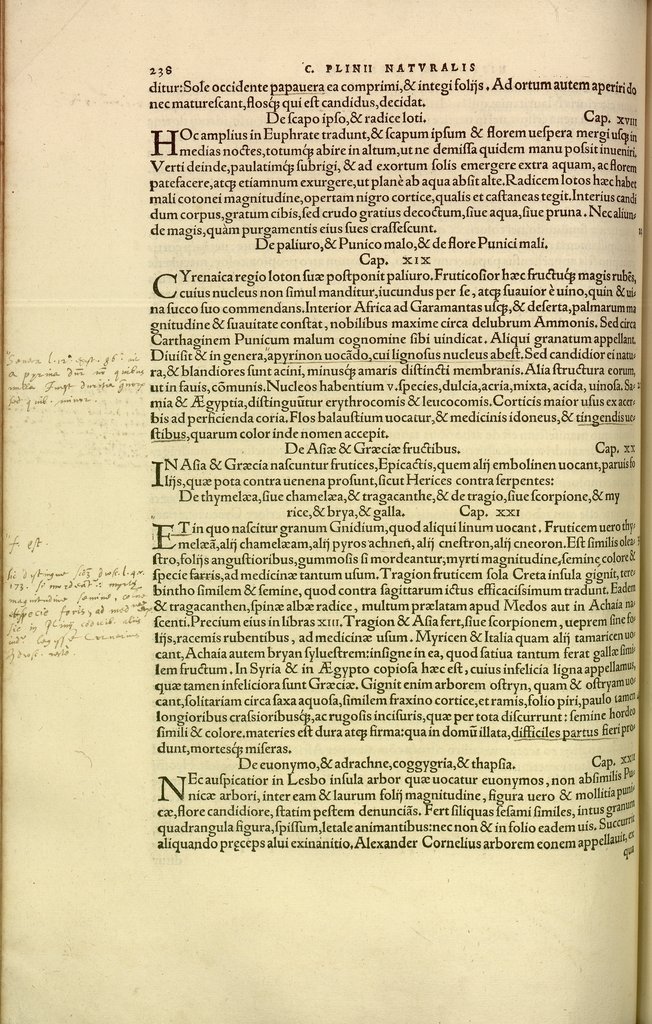 238
C. PLINII NATVRALIS
ditur: Sole occidente papauera ea comprimi, & integi folijs. Ad ortum autem aperiri do
nec maturescant, flosq́; qui est candidus, decidat.
De scapo ipso, & radice loti. Cap. XVIII
HOc amplius in Euphrate tradunt, & scapum ipsum & florem uespera mergi usq́; in
medias noctes, totumq́; abire in altum, ut ne demissa quidem manu possit inueniri.
Verti deinde, paulatimq́; subrigi, & ad exortum solis emergere extra aquam, ac florem
patefacere, atq́; etiamnum exurgere, ut planè ab aqua absit alte. Radicem lotos hæc habet
mali cotonei magnitudine, opertam nigro cortice, qualis et castaneas tegit. Interius candi
dum corpus, gratum cibis, sed crudo gratius decoctum, siue aqua, siue pruna. Nec aliun
de magis, quàm purgamentis eius sues crassescunt.
De paliuro, & Punico malo, & de flore Punici mali.
Cap. XIX
CYrenaica regio loton suæ postponit paliuro. Fruticosior hæc fructuq́; magis rubẽs,
cuius nucleus non simul manditur, iucundus per se, atq́; suauior è uino, quin & ui-
na succo suo commendans. Interior Africa ad Garamantas usq́;, & deserta, palmarum ma
gnitudine & suauitate constat, nobilibus maxime circa delubrum Ammonis. Sed circa
Carthaginem Punicum malum cognomine sibi uindicat. Aliqui granatum appellant.
Diuisit & in genera, apyrinon uocãdo, cui lignosus nucleus abest. Sed candidior ei natu
ra, & blandiores sunt acini, minusq́; amaris distincti membranis. Alia structura eorum,
ut in fauis, cõmunis. Nucleos habentium v. species, dulcia, acria, mixta, acida, uinosa. Sa-
mia & Ægyptia, distinguũtur erythrocomis & leucocomis. Corticis maior usus ex acer
bis ad perficienda coria. Flos balaustium uocatur, & medicinis idoneus, & tingendis ue
stibus, quarum color inde nomen accepit.
De Asiæ & Græciæ fructibus. Cap. XX
IN Asia & Græcia nascuntur frutices, Epicactis, quem alij embolinen uocant, paruis fo
lijs, quæ pota contra uenena prosunt, sicut Herices contra serpentes:
De thymelæa, siue chamelæa, & tragacanthe, & de tragio, siue scorpione, & my
rice, & brya, & galla. Cap. XXI
ET in quo nascitur granum Gnidium, quod aliqui linum uocant. Fruticem uero thy-
melæã, alij chamelæam, alij pyros achnen, alij cnestron, alij cneoron. Est similis olea
stro, folijs angustioribus, gummosis si mordeantur, myrti magnitudine, semine, colore &
specie farris, ad medicinæ tantum usum. Tragion fruticem sola Creta insula gignit, tere-
bintho similem & semine, quod contra sagittarum ictus efficacissimum tradunt. Eadem
& tragacanthen, spinæ albæ radice, multum prælatam apud Medos aut in Achaia na
scenti. Precium eius in libras XIII. Tragion & Asia fert, siue scorpionem, ueprem sine fo
lijs, racemis rubentibus, ad medicinæ usum. Myricen & Italia quam alij tamaricen uo
cant, Achaia autem bryan syluestrem: insigne in ea, quod satiua tantum ferat gallæ simi
lem fructum. In Syria & in Ægypto copiosa hæc est, cuius infelicia ligna appellamus,
quæ tamen infeliciora sunt Græciæ. Gignit enim arborem ostryn, quam & ostryam uo-
cant, solitariam circa saxa aquosa, similem fraxino cortice, et ramis, folio piri, paulo tamen
longioribus crassioribusq́;, ac rugosis incisuris, quæ per tota discurrunt: semine hordeo
simili & colore. materies est dura atq́; firma: qua in domũ illata, difficiles partus fieri pro
dunt, mortesq́; miseras.
De euonymo, & adrachne, coggygria, & thapsia. Cap. XXII
NEc auspicatior in Lesbo insula arbor quæ uocatur euonymos, non absimilis Pu-
nicæ arbori, inter eam & laurum folij magnitudine, figura uero & mollitia puni-
cæ, flore candidiore, statim pestem denunciãs. Fert siliquas sesami similes, intus granum
quadrangula figura, spissum, letale animantibus: nec non & in folio eadem uis. Succurrit
aliquando præceps alui exinanitio, Alexander Cornelius arborem eonem appellauit, ex
qua